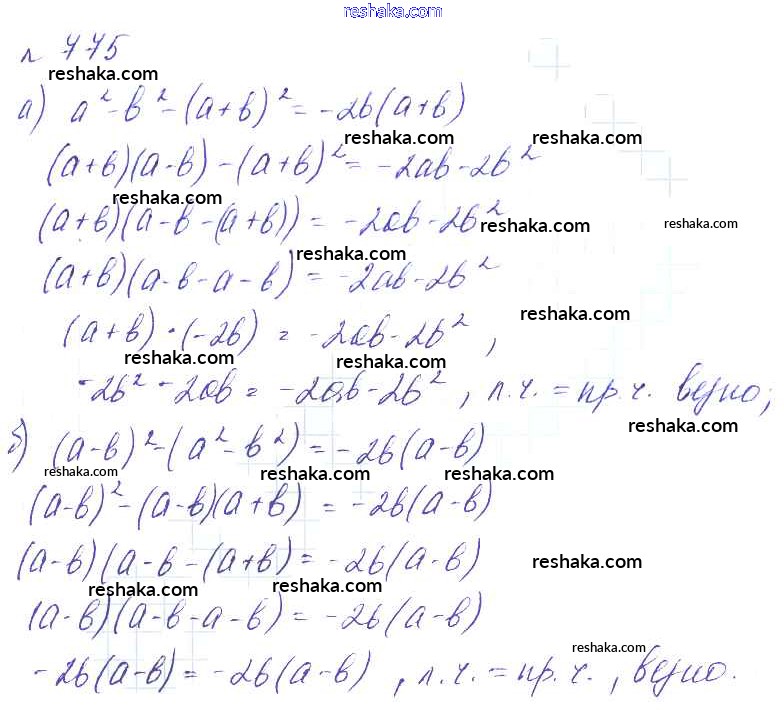 reshaka.com
№ 775
reshaka.com
а) a² - в² - (a + в)² = -2в(a + в)
reshaka.com reshaka.com
(a + в)(a - в) - (a + в)² = -2aв - 2в²
reshaka.com
(a + в)(a - в - (a + в)) = -2aв - 2в²
reshaka.com reshaka.com
reshaka.com
(a + в)(a - в - a - в) = -2aв - 2в²
reshaka.com
(a + в) · (-2в) = -2aв - 2в²,
reshaka.com reshaka.com
-2в² - 2aв = -2aв - 2в², л.ч. = пр.ч. верно;
reshaka.com
б) (a - в)² - (a² - в²) = -2в(a - в)
reshaka.com reshaka.com reshaka.com
(a - в)² - (a - в)(a + в) = -2в(a - в)
(a - в)(a - в - (a + в) = -2в(a - в)
reshaka.com
reshaka.com reshaka.com
(a - в)(a - в - a - в) = -2в(a - в)
reshaka.com
-2в(a - в) = -2в(a - в), л.ч. = пр.ч., верно.